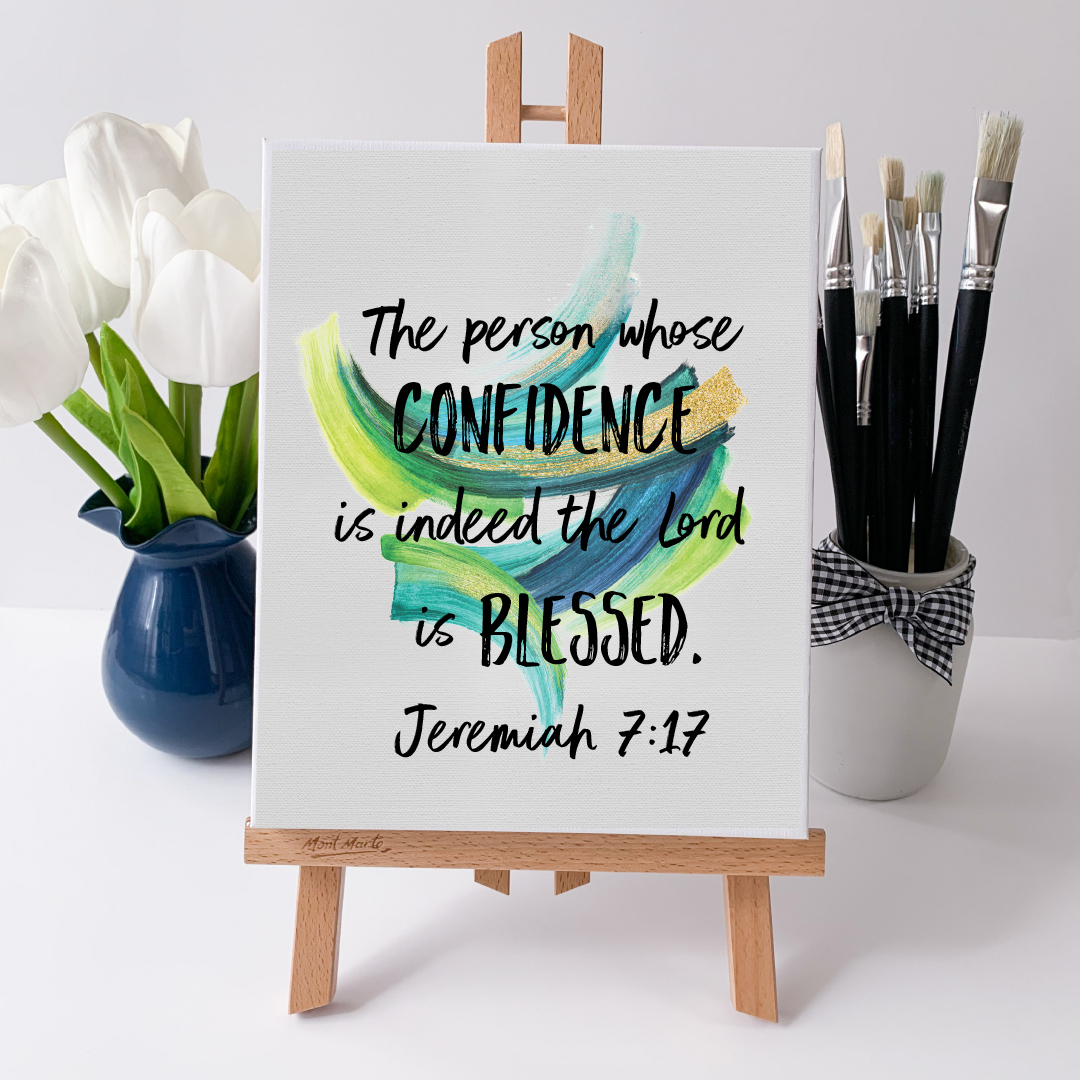 The person whose
CONFIDENCE
is indeed the Lord
is BLESSED.
Jeremiah 7:17
Mont Marte